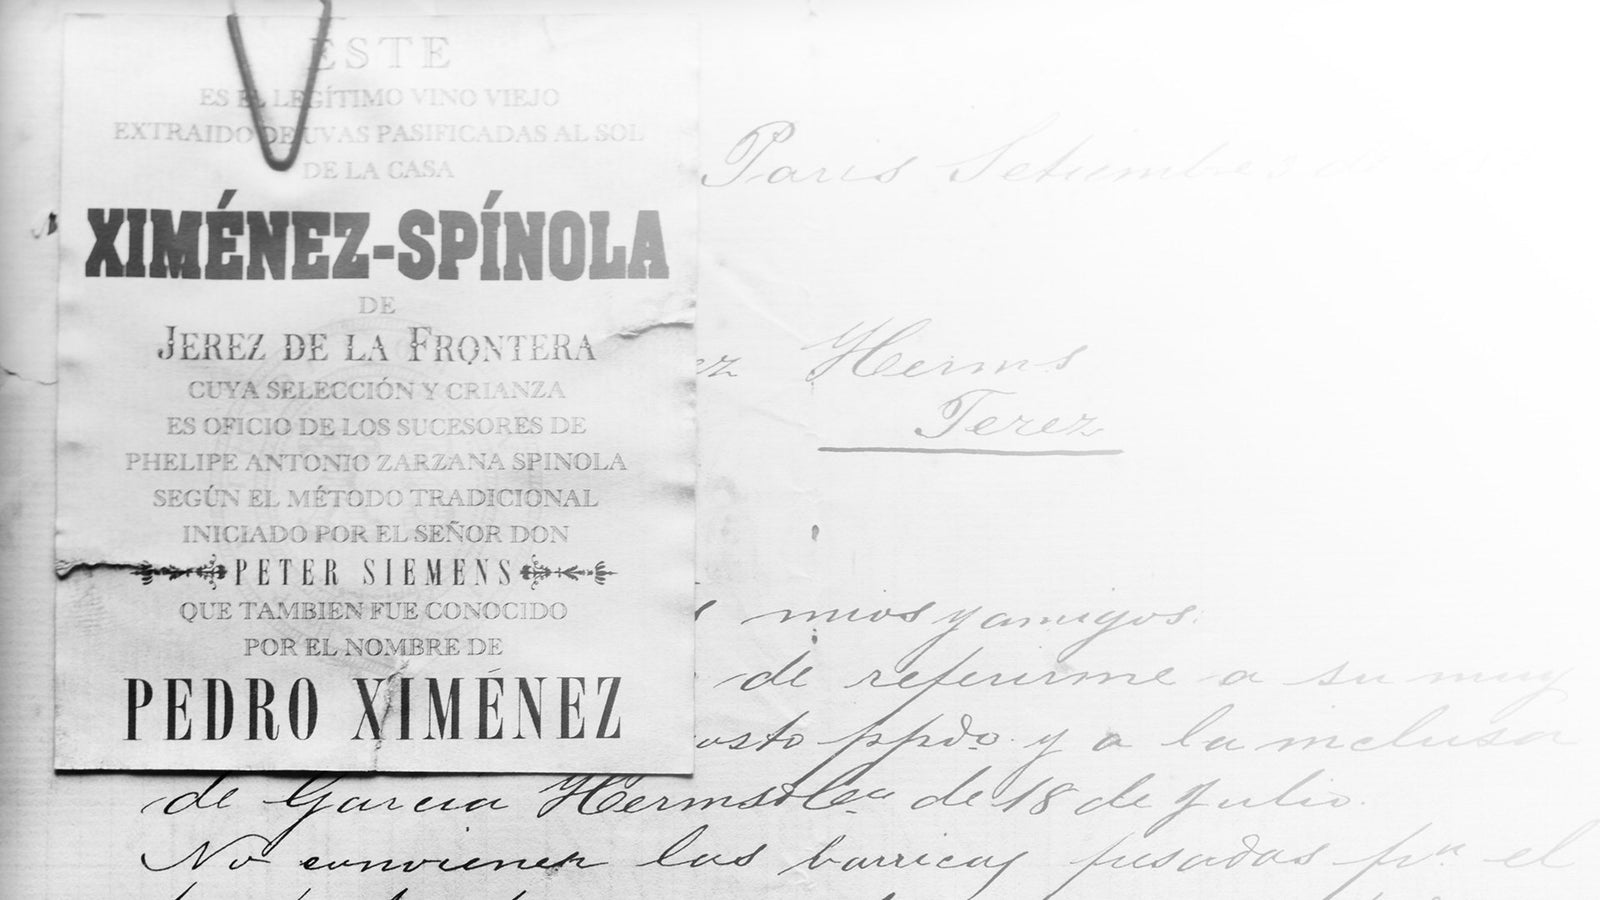 ESTE
ES EL LEGÍTIMO VINO VIEJO
EXTRAIDO DE UVAS PASIFICADAS AL SOL
DE LA CASA
XIMÉNEZ-SPÍNOLA
DE
JEREZ DE LA FRONTERA
CUYA SELECCIÓN Y CRIANZA
ES OFICIO DE LOS SUCESORES DE
PHELIPE ANTONIO ZARZANA SPINOLA
SEGÚN EL MÉTODO TRADICIONAL
INICIADO POR EL SEÑOR DON
PETER SIEMENS
QUE TAMBIEN FUE CONOCIDO
POR EL NOMBRE DE
PEDRO XIMÉNEZ
Paris Setiembre 3 de
ez Herms
Jerez
mios y amigos.
de referirme a su muy
osto ppdo. y a la inclusa
de Garcia Herms & Ca. de 18 de Julio.
No convienen las barricas usadas pa el